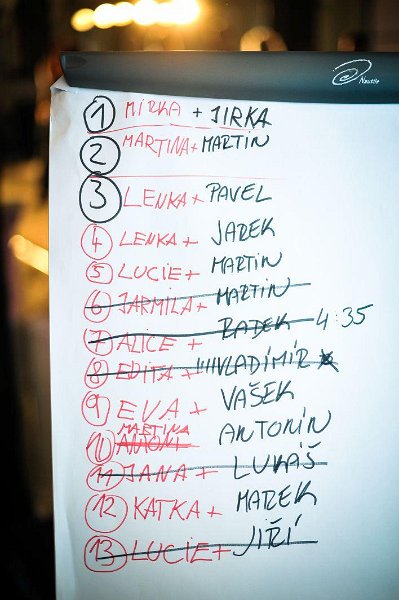 Nautile
1 MIRKA + JIRKA
2 MARTINA + MARTIN
3 LENKA + PAVEL
4 LENKA + JAREK
5 LUCIE + MARTIN
6 JARMILA + MARTIN
7 ALICE + RADEK 4:35
8 EDITA + !!!VLADIMÍR
9 EVA + VAŠEK
MARTINA
10 ANTONI ANTONÍN
11 JANA + LUKÁŠ
12 KATKA + MAREK
13 LUCIE + JIŘÍ